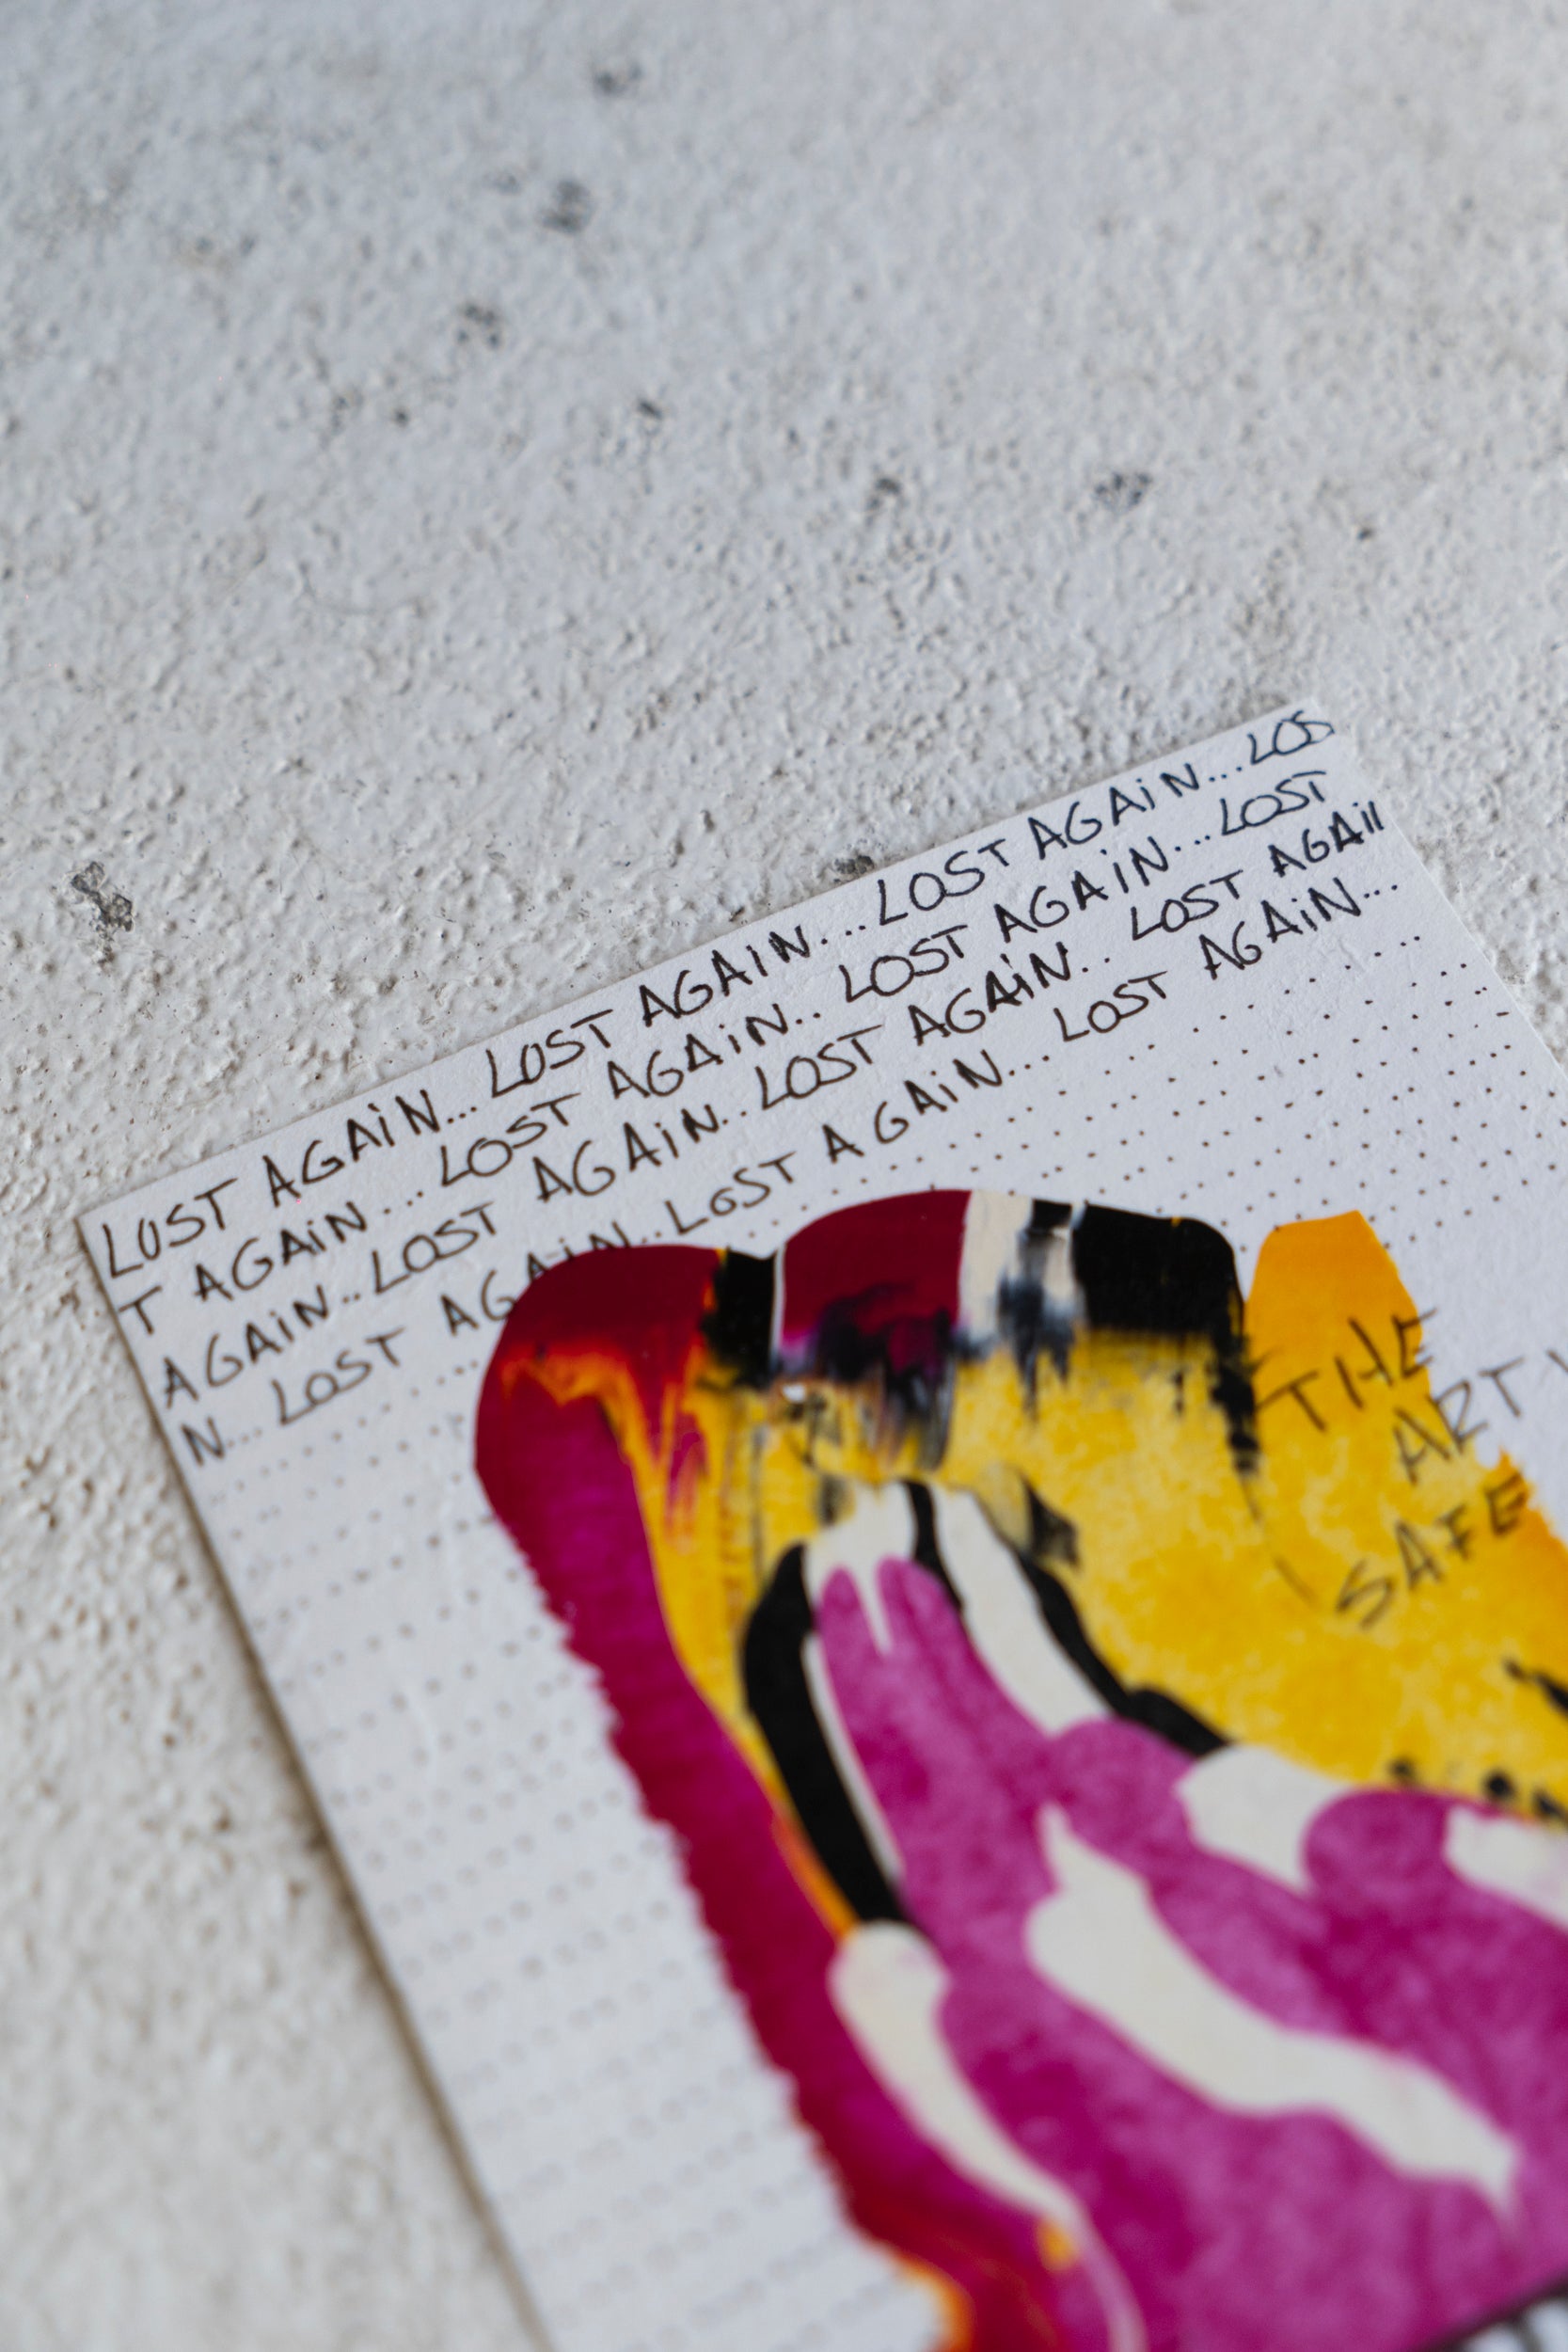 LOST AGAiN... LOST AGAiN... LOST AGAiN... LOS
T AGAiN... LOST AGAiN.. LOST AGAiN... LOST
AGAiN.. LOST AGAiN.. LOST AGAiN.. LOST AGAiI
N... LOST AGAiN.. LOST AGAiN... LOST AGAiN...
THE
ART
SAFE